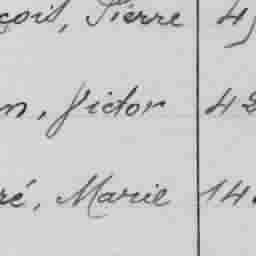 çois, Pierre 4
n, Victor 42
ré, Marie 14